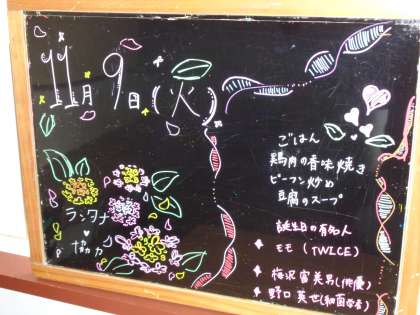 11月9日(火)
ランタナ
協力
ごはん
鶏肉の香味焼き
ビーフン炒め
豆腐のスープ
誕生日の有名人
モモ (TWICE)
梅沢富美男(俳優)
野口英世(細菌学者)